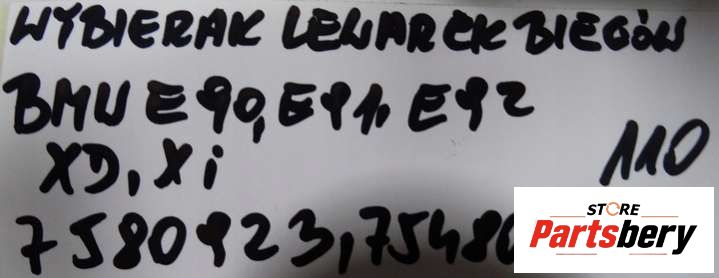 WYBIERAK LEWAREK BIEGÓW
BMW E90, E91, E92
XD, Xi
110
7580923, 75480
STORE
Partsbery